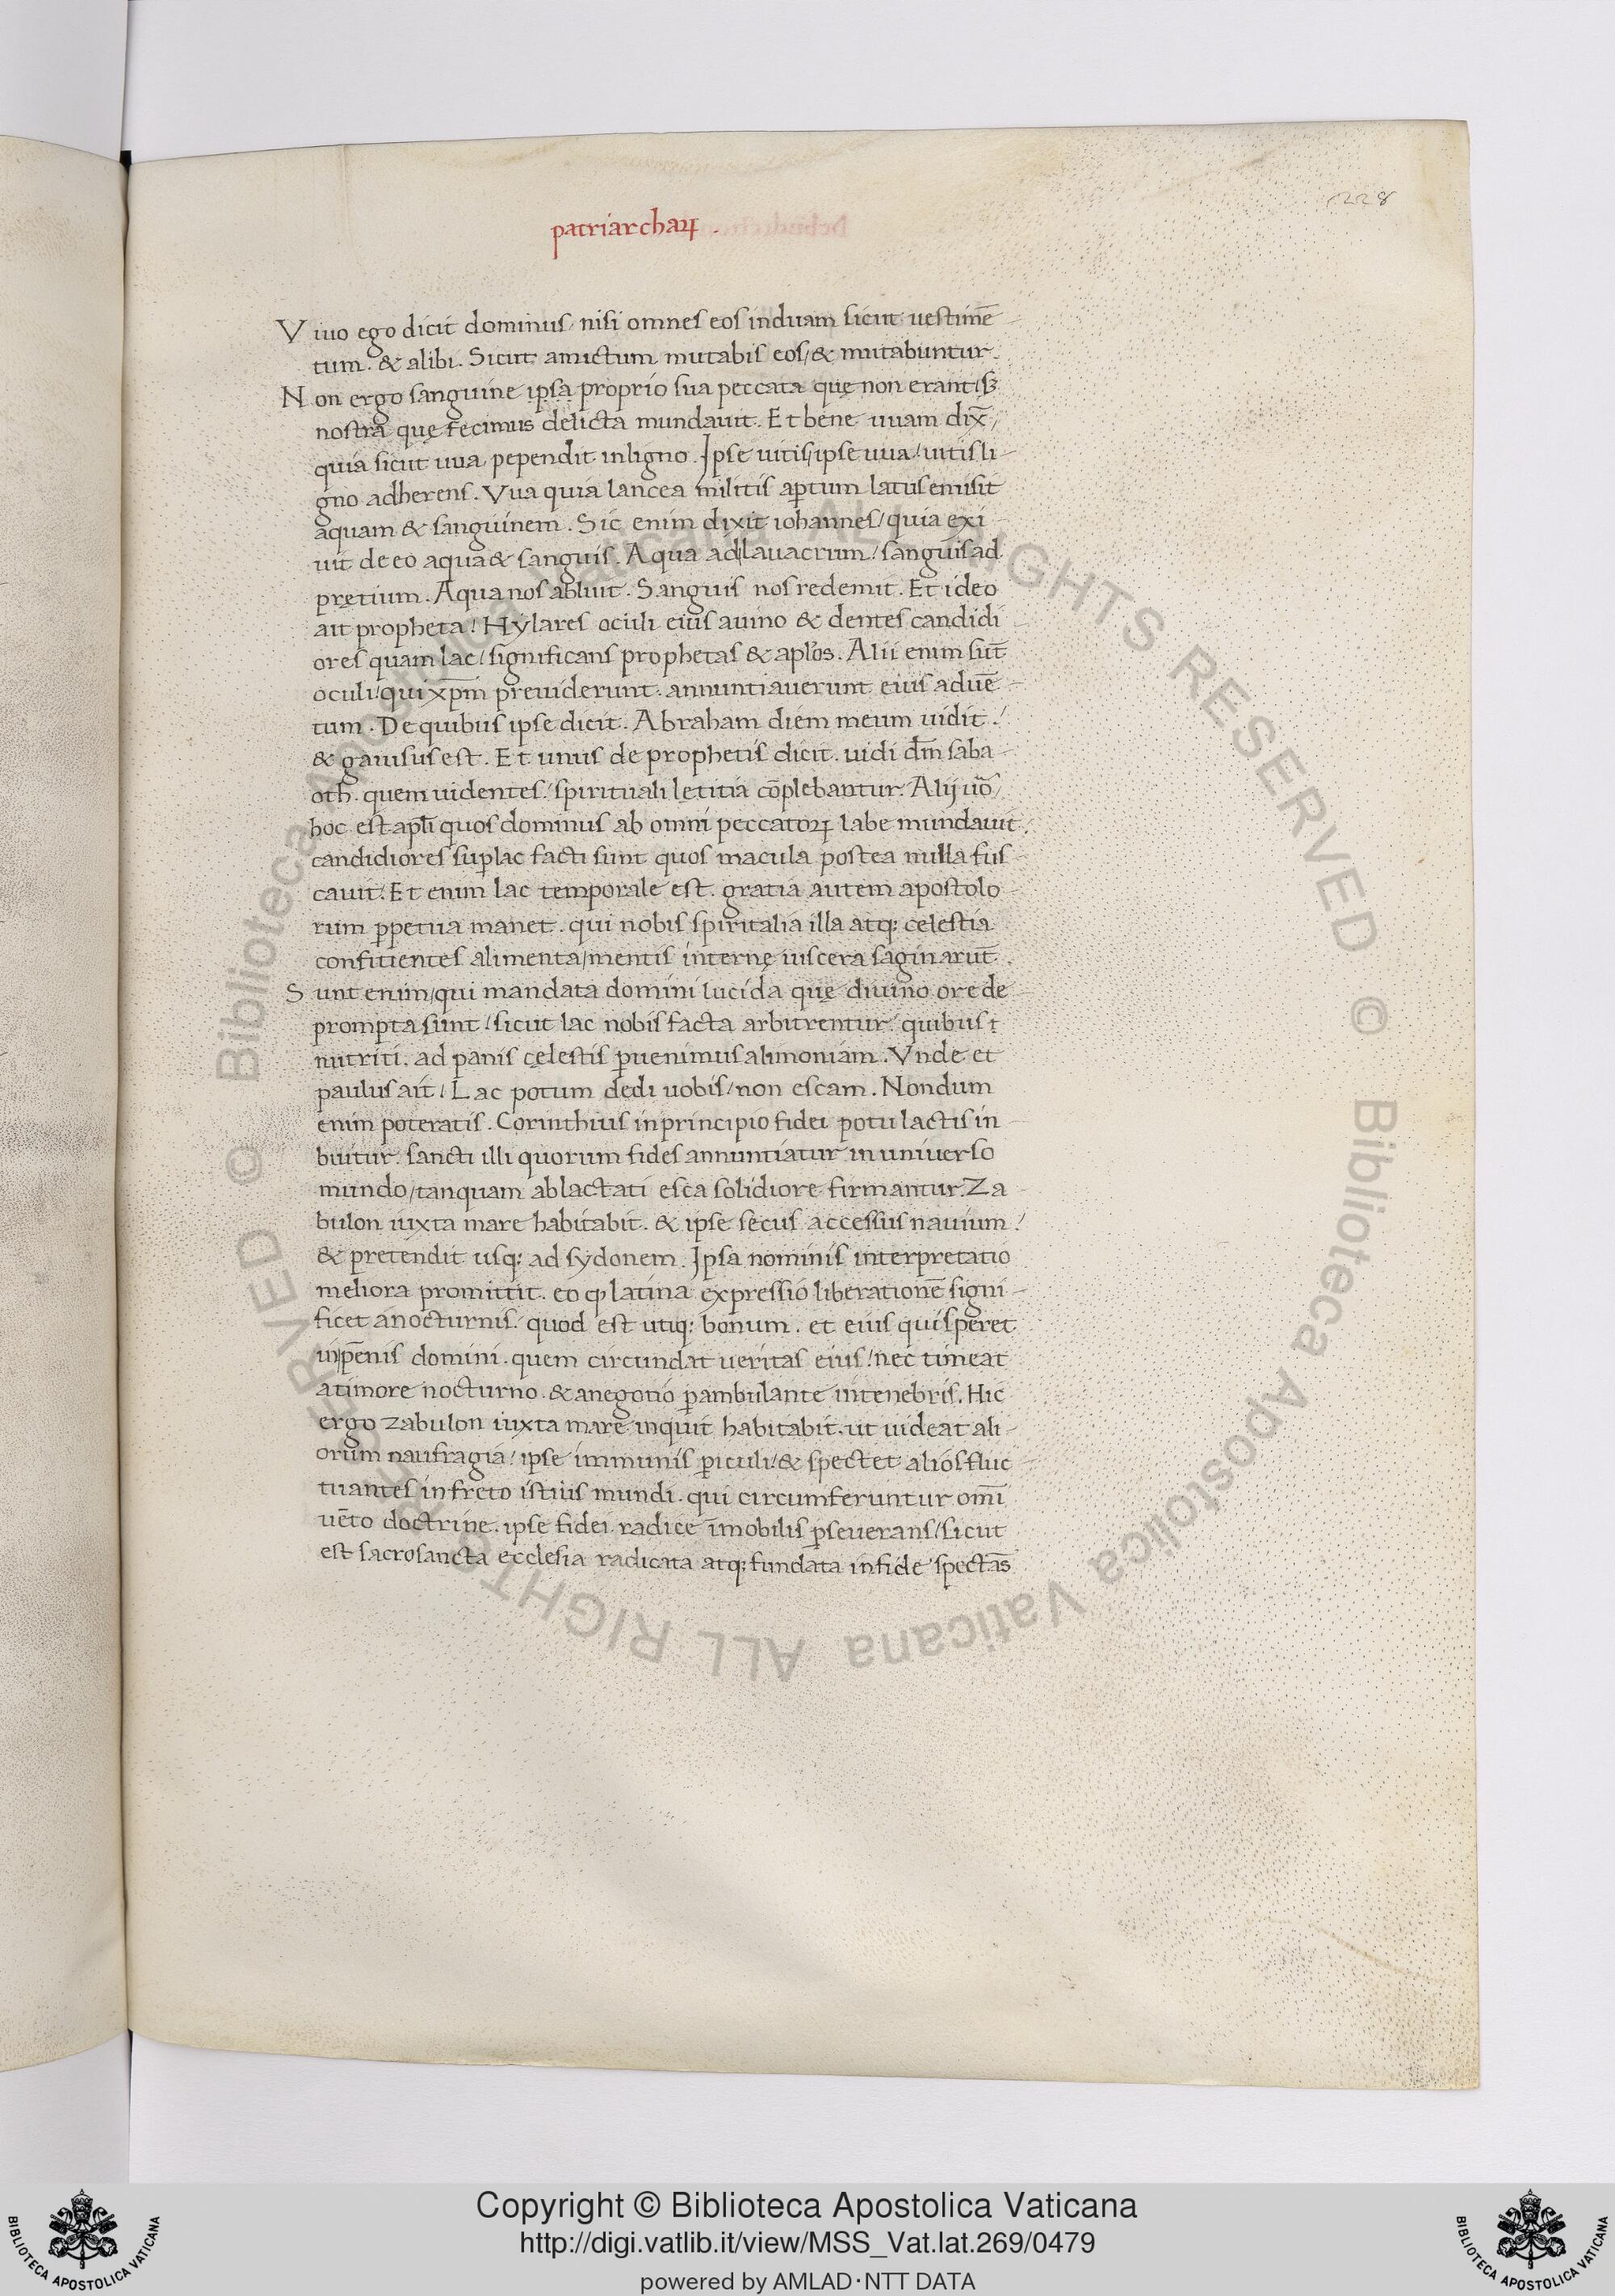 228
patriarchaꝝ.
Viuo ego dicit dominus, nisi omnes eos induam sicut uestimē
tum. & alibi. Sicut amictum mutabis eos, & mutabuntur.
Non ergo sanguine ipsa proprio sua peccata quę non erant, sꝫ
nostra quę fecimus delicta mundauit. Et bene uuam dix̄,
quia sicut uua pependit in ligno. Ipse uitis, ipse uua, uitis li
gno adherens. Vua quia lancea militis aꝑtum latus emisit
aquam & sanguinem. Sic enim dixit iohannes, quia exi
uit de eo aqua & sanguis. Aqua ad lauacrum, sanguis ad
pretium. Aqua nos abluit. Sanguis nos redemit. Et ideo
ait propheta! Hylares oculi eius a uino & dentes candidi
ores quam lac, significans prophetas & apl̄os. Alii enim sūt
oculi, qui xp̄m preuiderunt. annuntiauerunt eius aduē
tum. De quibus ipse dicit. Abraham diem meum uidit,
& gauisus est. Et unus de prophetis dicit. uidi dn̄m saba
oth. quem uidentes, spirituali lętitia cōplebantur. Alij uō,
hoc est apl̄i quos dominus ab omni peccatoꝝ labe mundauit,
candidiores suꝑ lac facti sunt quos macula postea nulla fus
cauit. Et enim lac temporale est. gratia autem apostolo
rum ꝑpetua manet. qui nobis spiritalia illa atq; celestia
conficientes alimenta, mentis internę uiscera saginarūt.
Sunt enim, qui mandata domini lucida quę diuino ore de
prompta sunt, sicut lac nobis facta arbitrentur. quibus i
nutriti. ad panis cęlestis ꝑuenimus alimoniam. Vnde et
paulus ait, Lac potum dedi uobis, non escam. Nondum
enim poteratis. Corinthius in principio fidei potu lactis in
buitur. sancti illi quorum fides annuntiatur in uniuerso
mundo, tanquam ablactati esca solidiore firmantur. Za
bulon iuxta mare habitabit. & ipse secus accessus nauium,
& pretendit usq; ad sydonem. Ipsa nominis interpretatio
meliora promittit. eo ꝙ latina expressio liberationē signi
ficet a nocturnis. quod est utiq; bonum. et eius qui speret
in pēnis domini. quem circundat ueritas eius, nec timeat
a timore nocturno. & a negotio ꝑambulante in tenebris. Hic
ergo zabulon iuxta mare inquit habitabit. ut uideat ali
orum naufragia, ipse immunis ꝑiculi, & spectet alios fluc
tuantes in freto istius mundi. qui circumferuntur omī
uēto doctrine. ipse fidei radice īmobilis ꝑseuerans, sicut
est sacrosancta ecclesia radicata atq; fundata in fide spectās
© Biblioteca Apostolica Vaticana ALL RIGHTS RESERVED © Biblioteca Apostolica Vaticana ALL RIGHTS RESERVED
Copyright © Biblioteca Apostolica Vaticana
http://digi.vatlib.it/view/MSS_Vat.lat.269/0479
powered by AMLAD·NTT DATA
BIBLIOTECA APOSTOLICA VATICANA
BIBLIOTECA APOSTOLICA VATICANA